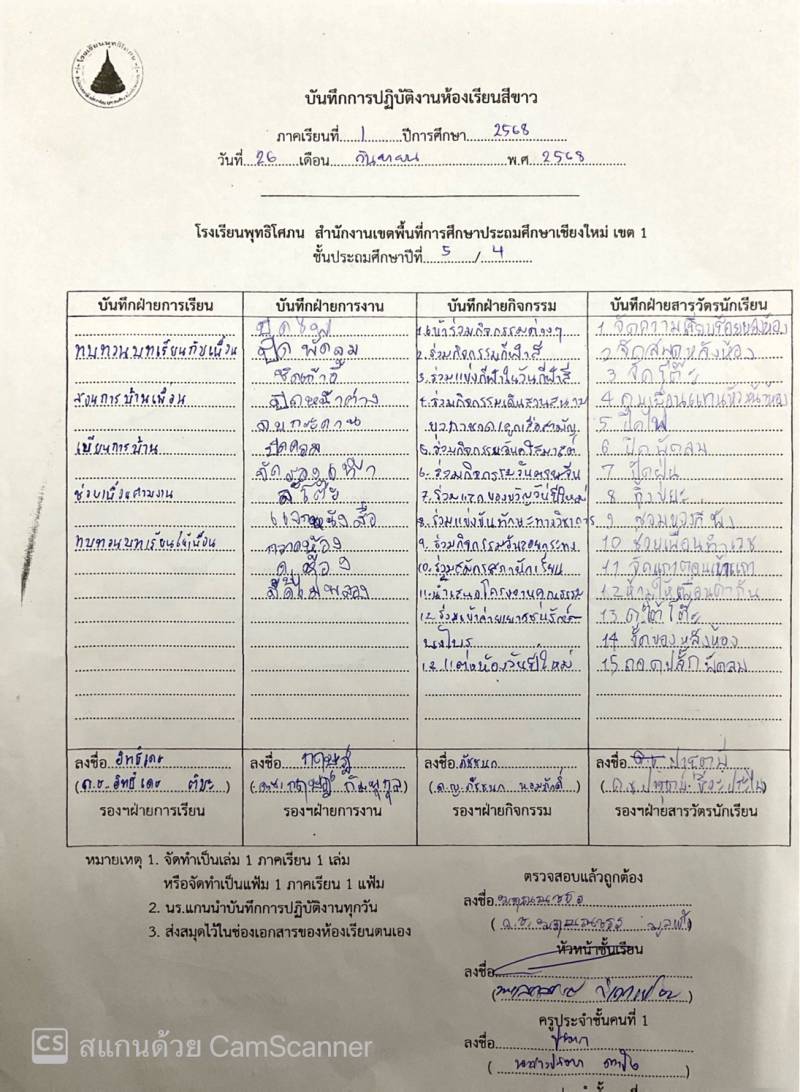 บันทึกการปฏิบัติงานห้องเรียนสีขาว
ภาคเรียนที่ 1 ปีการศึกษา 2568
วันที่ 26 เดือน กันยายน พ.ศ. 2568
โรงเรียนพุทธิโศภน สำนักงานเขตพื้นที่การศึกษาประถมศึกษาเชียงใหม่ เขต 1
ชั้นประถมศึกษาปีที่ 5 / 4
บันทึกฝ่ายการเรียน
ทบทวนบทเรียนกับเพื่อน
สอนการบ้านเพื่อน
เขียนการบ้าน
ช่วยเพื่อนตามงาน
ทบทวนบทเรียนให้เพื่อน
บันทึกฝ่ายการงาน
ปิดไฟ
ปิดพัดลม
ปิดหน้าต่าง
ลบกระดาน
ปิดคอม
จัดรองเท้า
แจกหนังสือ
กวาดห้อง
บันทึกฝ่ายกิจกรรม
1.เข้าร่วมกิจกรรมต่างๆ
2.ร่วมกิจกรรมกีฬาสี
3.ร่วมแข่งกีฬาในวันกีฬาสี
4.ร่วมกิจกรรมเดินสวนสนาม
ลูกเสือสามัญ
5.ร่วมกิจกรรมวันคริสมาสต์
6.ร่วมกิจกรรมวันตรุษจีน
7.ร่วมแลกของขวัญวันปีใหม่
8.ร่วมแข่งขันทักษะทางวิชาการ
9.ร่วมกิจกรรมวันลอยกระทง
10.ร่วมสมัครสภานักเรียน
11.นำเสนอโครงงานคุณธรรม
12.ร่วมเข้าค่าย
13 แต่งห้องวันปีใหม่
บันทึกฝ่ายสารวัตรนักเรียน
1 จัดความเรียบร้อยของห้อง
2 จัดสมุดหลังห้อง
3 จัดโต๊ะ
4 คุมเพื่อนแทนหัวหน้าห้อง
5 ปิดไฟ
6 ปิดพัดลม
7 ปัดฝุ่น
8 ทิ้งขยะ
9 ซ่อมของที่พัง
10 ช่วยเพื่อนทำเวร
11 จัดแถวตอนเข้าแถว
12 ห้ามให้เพื่อนด่ากัน
13 ดูใต้โต๊ะ
14 จัดของหลังห้อง
15 ถอดปลั๊กพัดลม
ลงชื่อ อิทธิเดช
(ด.ช. อิทธิเดช)
รองฯฝ่ายการเรียน
ลงชื่อ
รองฯฝ่ายการงาน
ลงชื่อ ภัชชนก
(ด.ญ. ภัชชนก)
รองฯฝ่ายกิจกรรม
ลงชื่อ
รองฯฝ่ายสารวัตรนักเรียน
หมายเหตุ 1. จัดทำเป็นเล่ม 1 ภาคเรียน 1 เล่ม
หรือจัดทำเป็นแฟ้ม 1 ภาคเรียน 1 แฟ้ม
2. นร.แกนนำบันทึกการปฏิบัติงานทุกวัน
3. ส่งสมุดไว้ในช่องเอกสารของห้องเรียนตนเอง
ตรวจสอบแล้วถูกต้อง
ลงชื่อ
หัวหน้าชั้นเรียน
ลงชื่อ
ครูประจำชั้นคนที่ 1
ลงชื่อ
CS สแกนด้วย CamScanner